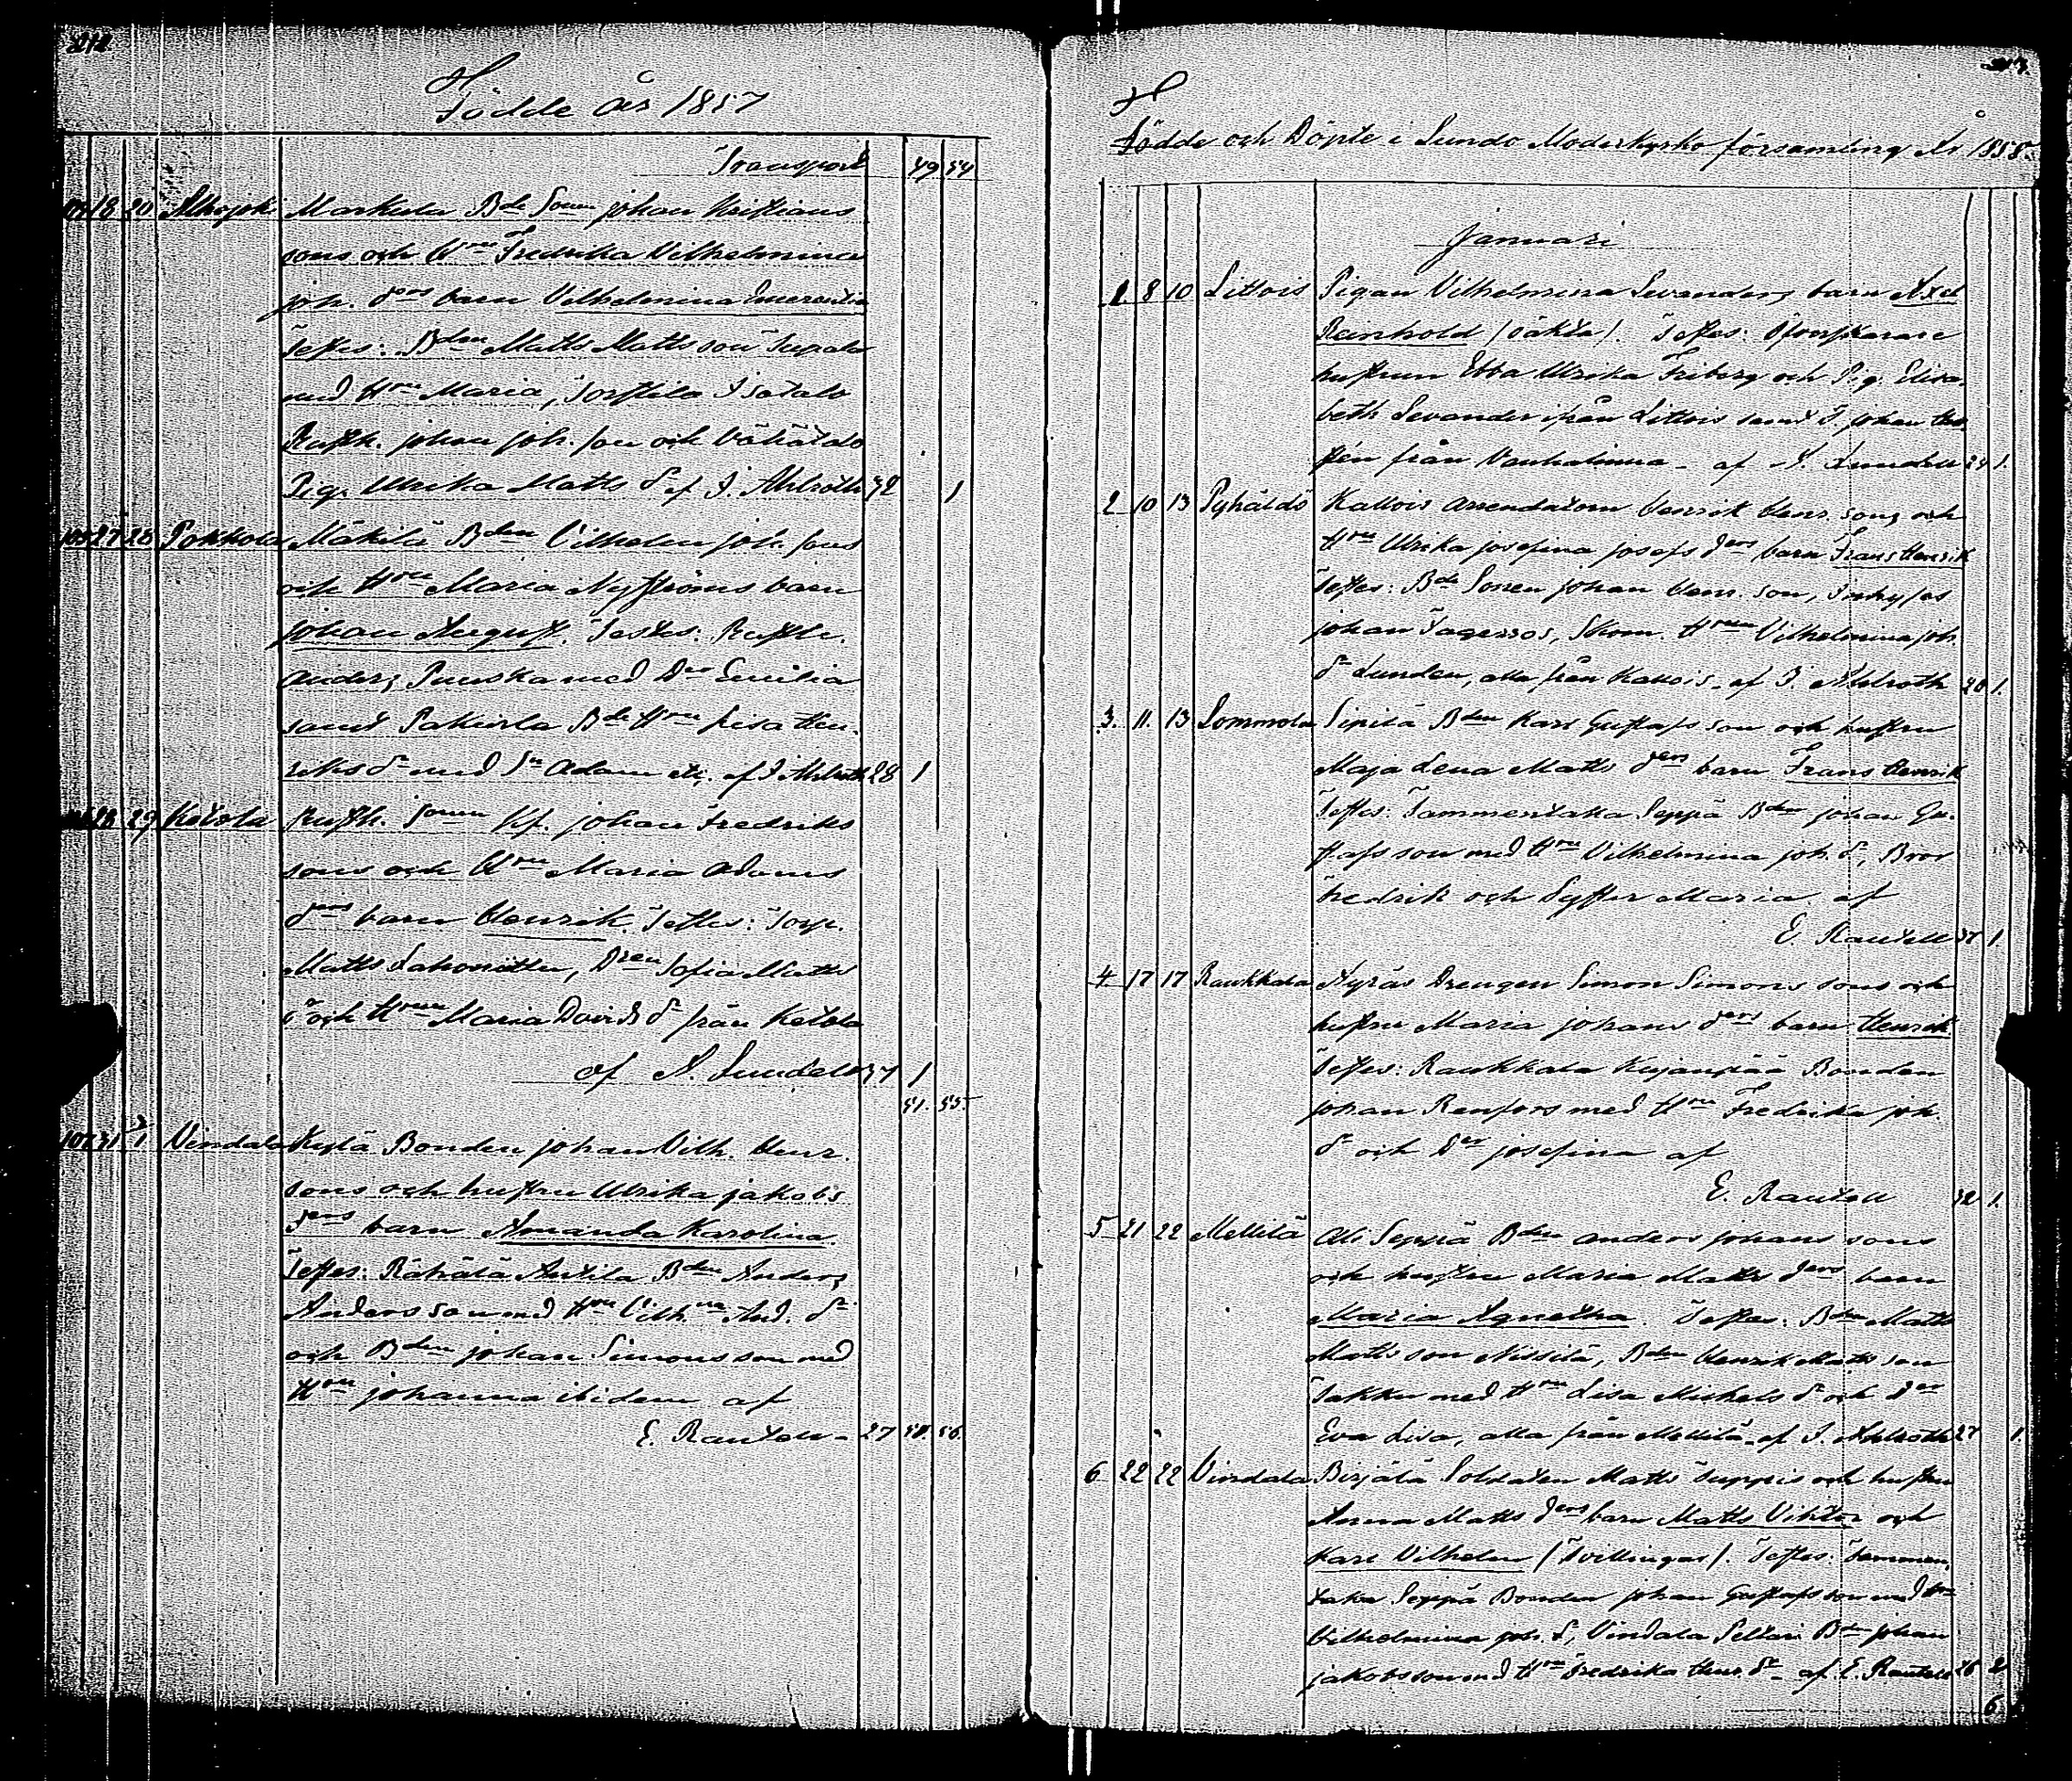 212
Födde år 1857
Transport 49 54
18 20 Alhojoki Markula Bde Sonen Johan Kristians
sons och Hru Fredrika Vilhelmina
Joh. drs barn Vilhelmina Emerentia
Testes: Bden Matts Matts son Sepala
med Hru Maria, Isotalo
Rusth. Johan Joh. son och Vähätalo
Pig. Ulrika Matts dr af J. Ahlroth 32 1
105 27 28 Pokkola Mäkilä Bden Vilhelm Joh. sons
och Hru Maria Nyströms barn
Johan August. Testes: Rusth.
Anders Puuska med Dr Emilia
samt Pakurla Bde Hru Lisa Hen-
riks dr med Sn Adam etc. af J. Ahlroth 28 1
28 29 Ketola Rusth. Sonen Johan Fredriks
sons och Hru Maria Adams
drs barn Henrik. Testes: Torp.
Matts Lahonitten, Dren Sofia Matts
dr och Hrun Maria Davids dr från Ketola
af A. Lundell 37 1
51. 55.
107 31 1 Vindala Kylä Bonden Johan Vilh. Henr.
sons och hustru Ulrika Jakobs
drs barn Amanda Karolina.
Testes: Rähälä Anttila Bden Anders
Anders son med Hru Vilh:na And. dr
och Bden Johan Simons son med
Hru Johanna ibidem af
E. Rautell 27 51. 56.
213.
Födde och Döpte i Lundo Moderkyrko församling År 1858.
Januari
1 8 10 Littois Pigan Vilhelmina Levanders barn Axel
Reinhold (oäkta). Testes:
hustrun Ebba Ulrika Friberg och Pig. Elisa-
beth Levander ifrån Littois samt D. Johan
från Vanhalinna - af A. Lundell 24 1.
2 10 13 Pyhältö Kallois Arrendatorn Henrik Henr. sons och
Hru Ulrika Josefina Josefs drs barn Frans Henrik
Testes: Bde Sonen Johan Henr. son, Inhyses
Johan Fagerroos, Skom. Hrun Vilhelmina Joh.
dr Lunden, alla från Kallois. af J. Ahlroth 28 1.
3. 11. 13 Tommola Sipilä Bden Karl Gustafs son och hustru
Maja Lena Matts drs barn Frans Henrik
Testes: Tammentaka Seppä Bden Johan Gu-
stafs son med Hru Vilhelmina Joh. dr, Bror
Fredrik och Syster Maria. af
E. Rautell 37 1.
4 17 17 Raukkala Äyräs Drengen Simon Simons sons och
hustru Maria Johans drs barn Henrik
Testes: Raukkala Kujanpää Bonden
Johan Renfors med Hru Fredrika Joh.
dr och Dr Josefina af
E. Rautell 32 1.
5 21 22 Mellilä Ali Seppä Bden Anders Johans sons
och hustru Maria Matts drs barn
Maria Agnetha. Testes: Bden Matts
Matts son Nissilä, Bden Henrik Matts son
Jakku med Hru Lisa Michels dr och Dr
Eva Lisa, alla från Mellilä. af J. Ahlroth 27 1.
6 22 22 Vindala Birjälä Soldaten Matts Suppis och hustru
Anna Matts drs barn Matts Viktor och
Karl Vilhelm (Tvillingar). Testes: Tammen-
taka Seppä Bonden Johan Gustafs son med Hru
Vilhelmina Joh. dr, Vindala Peltari Bden Johan
Jakobs son med Hru Fredrika Henr. dr - af E. Rautell 26 2
6